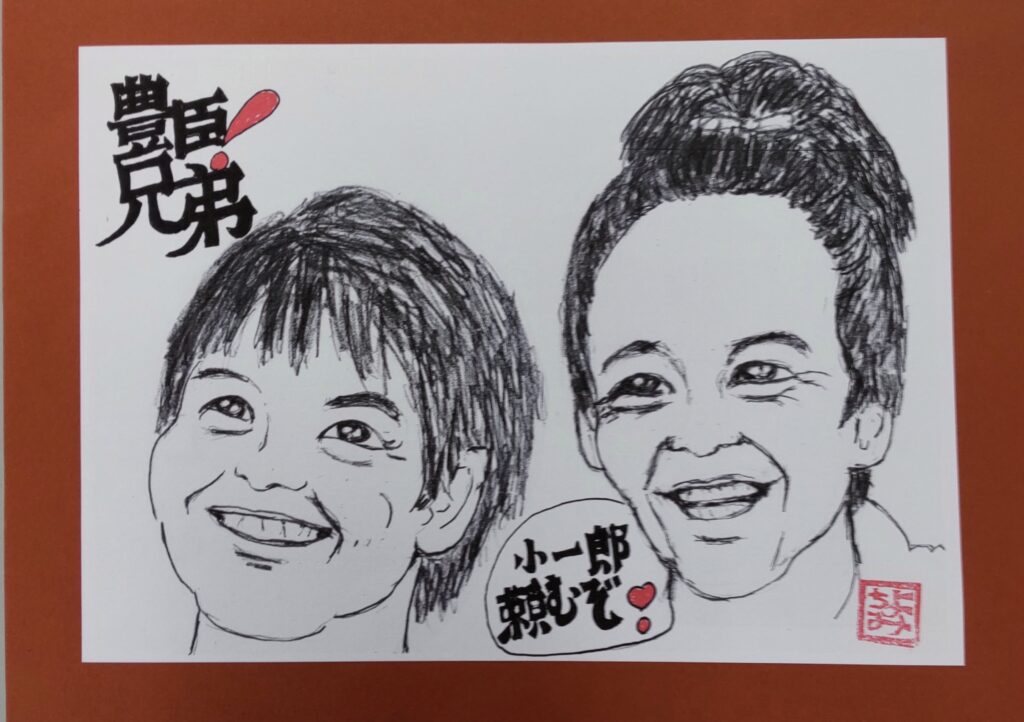 豊臣！
兄弟
小一郎
頼むぞ